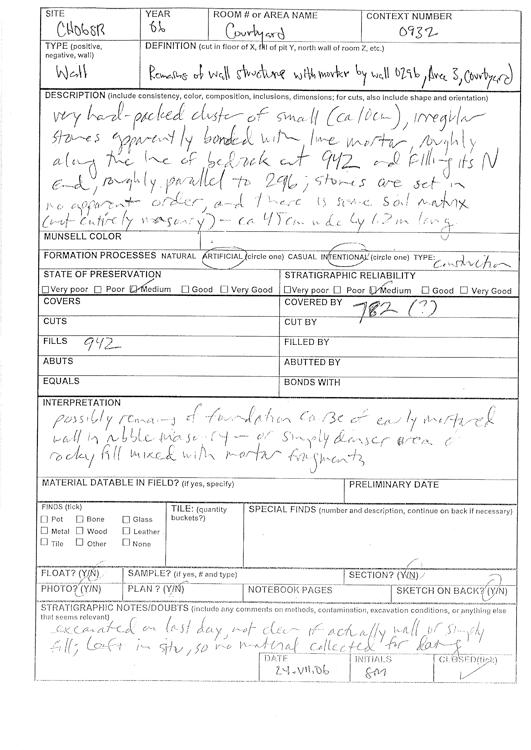 SITE YEAR ROOM # or AREA NAME CONTEXT NUMBER
CH06SR 06 Courtyard 0932
TYPE (positive, negative, wall) DEFINITION (cut in floor of X, fill of pit Y, north wall of room Z, etc.)
Wall Remains of wall structure with mortar by wall 0296, Area 3, Courtyard)
DESCRIPTION (include consistency, color, composition, inclusions, dimensions; for cuts, also include shape and orientation)
very hard-packed cluster of small (ca 10cm), irregular
stones apparently bonded with lime mortar, roughly
along the line of bedrock cut 942 and filling its N
end, roughly parallel to 296; stones are set in
no apparent order, and there is some soil matrix
(not entirely masonry) - ca 45cm wide by 1.2m long
MUNSELL COLOR
FORMATION PROCESSES NATURAL ARTIFICIAL (circle one) CASUAL INTENTIONAL (circle one) TYPE: construction
STATE OF PRESERVATION STRATIGRAPHIC RELIABILITY
Very poor Poor Medium Good Very Good Very poor Poor Medium Good Very Good
COVERS COVERED BY 782 (?)
CUTS CUT BY
FILLS 942 FILLED BY
ABUTS ABUTTED BY
EQUALS BONDS WITH
INTERPRETATION
possibly remains of foundation course of early mortared
wall in rubble masonry - or simply denser area of
rocky fill mixed with mortar fragments
MATERIAL DATABLE IN FIELD? (if yes, specify) PRELIMINARY DATE
FINDS (tick) TILE: (quantity buckets?) SPECIAL FINDS (number and description, continue on back if necessary)
Pot Bone Glass
Metal Wood Leather
Tile Other None
FLOAT? (Y/N) SAMPLE? (if yes, # and type) SECTION? (Y/N)
PHOTO? (Y/N) PLAN? (Y/N) NOTEBOOK PAGES SKETCH ON BACK? (Y/N)
STRATIGRAPHIC NOTES/DOUBTS (include any comments on methods, contamination, excavation conditions, or anything else
that seems relevant)
excavated on last day, not clear if actually wall or simply
fill; left in situ, so no material collected for dating
DATE INITIALS CLOSED (tick)
24.VII.06 SM